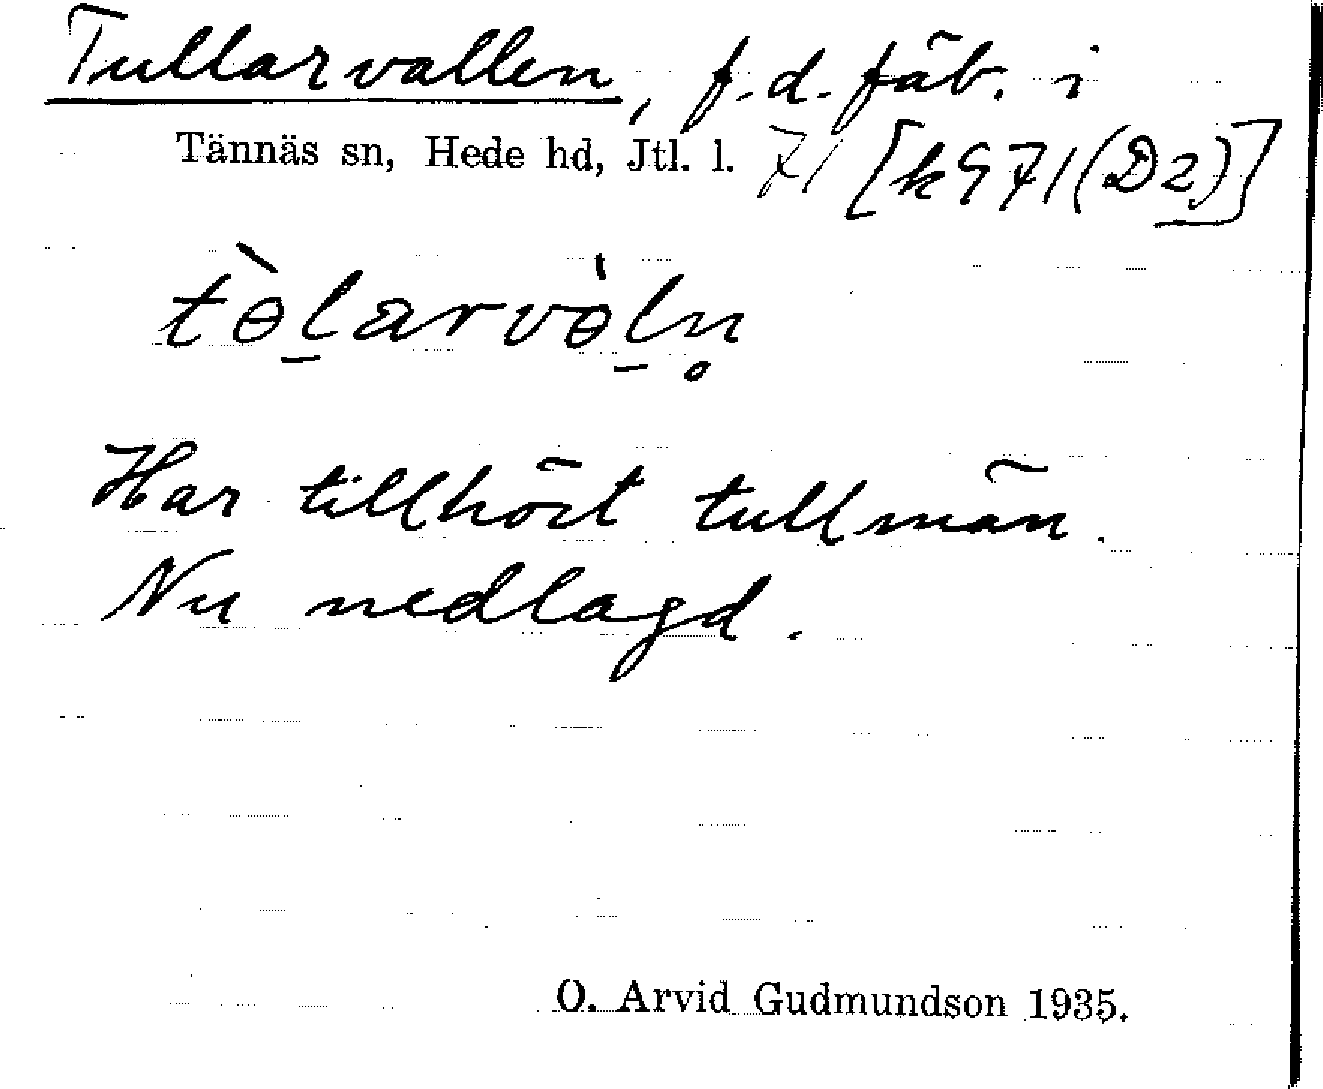 Tullarvallen, f.d. fäb. i
Tännäs sn, Hede hd, Jtl. l. 71 [k 971 (D2)]
tɵ̀l̠arvɵ̀l̠n̥
Har tillhört tullmän.
Nu nedlagd.
O. Arvid Gudmundson 1935.